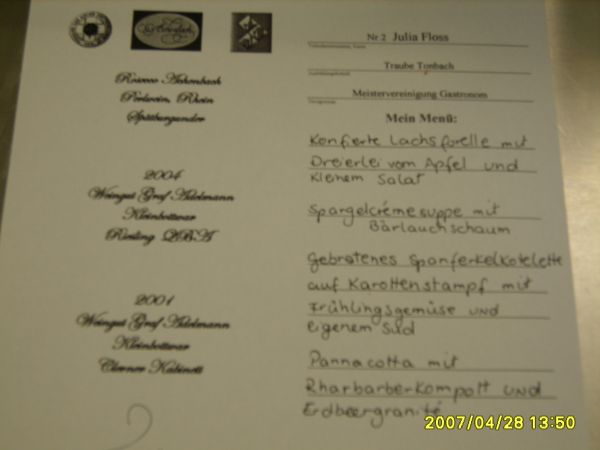 Achenbach
Perlwein, Rhein
Spätburgunder
2004
Weingut Graf Adelmann
Kleinbottwar
Riesling QBA
2001
Weingut Graf Adelmann
Kleinbottwar
Clevner Kabinett
Nr 2 Julia Floss
Traube Tonbach
Meistervereinigung Gastronom
Mein Menü:
Konfierte Lachsforelle mit
Dreierlei vom Apfel und
kleinem Salat
Spargelcrémesuppe mit
Bärlauchschaum
Gebratenes Spanferkelkotelette
auf Karottenstampf mit
Frühlingsgemüse und
eigenem Sud
Pannacotta mit
Rharbarberkompott und
Erdbeergranité
2007/04/28 13:50